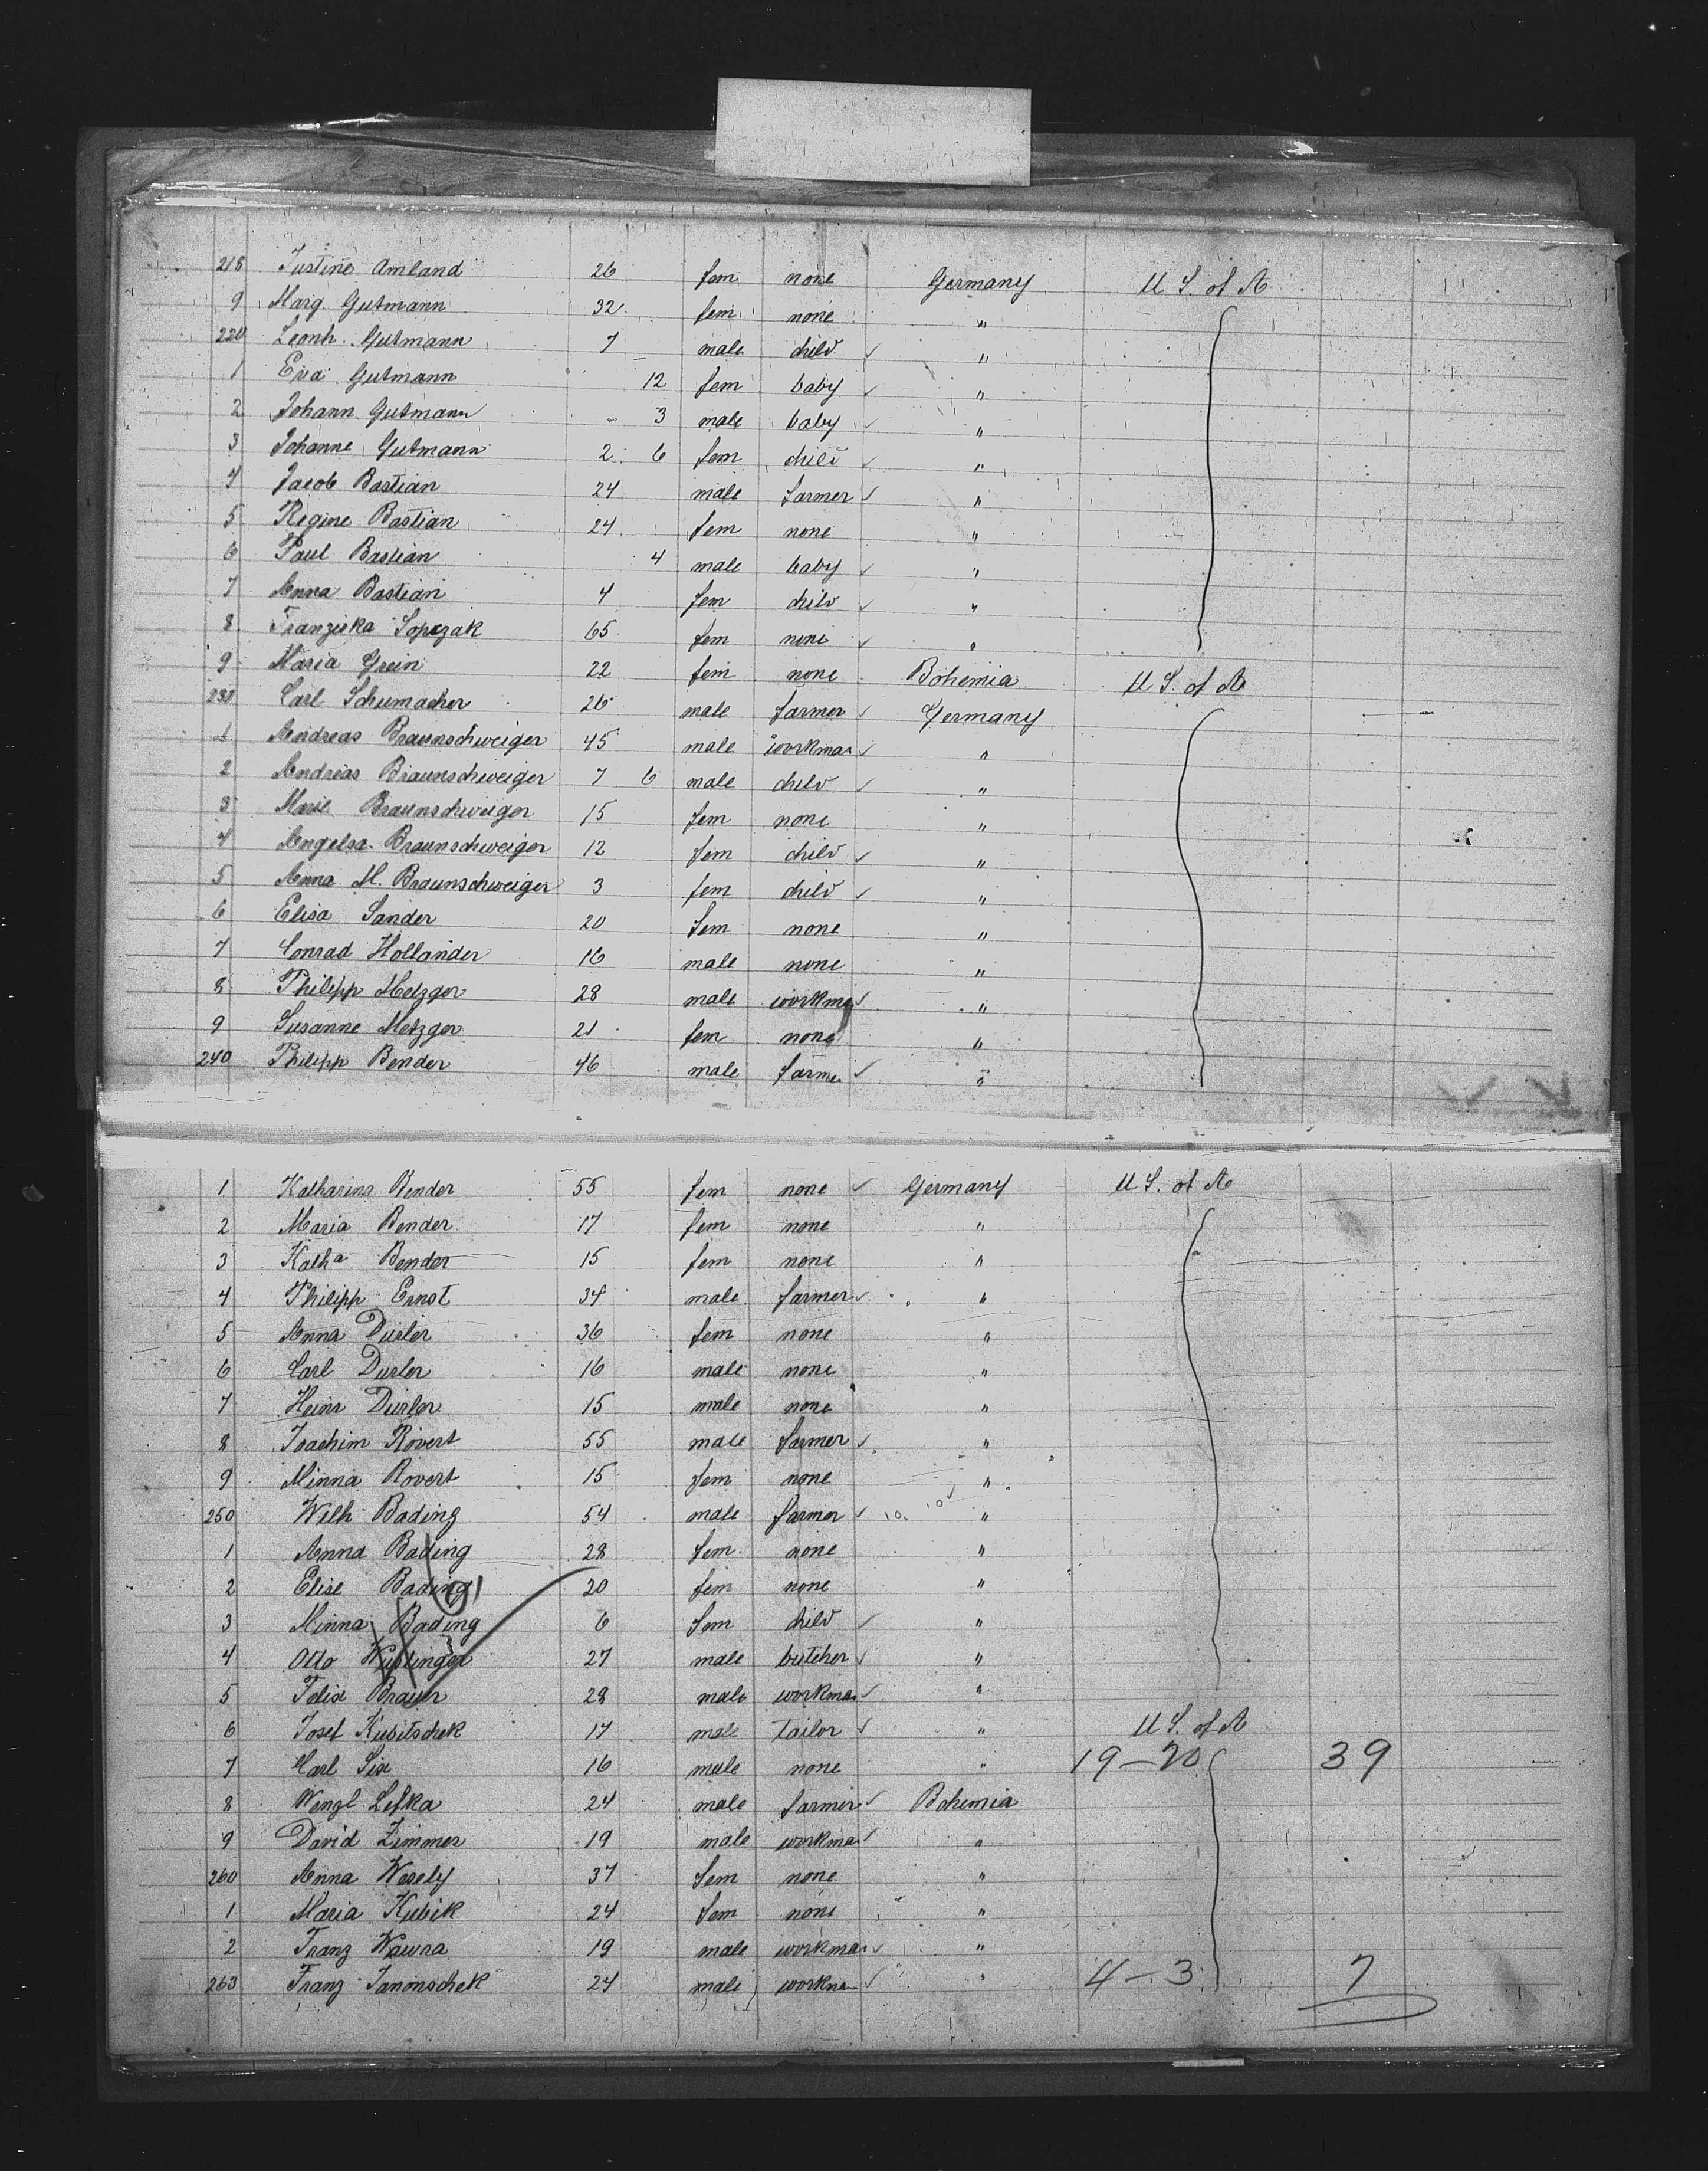 218 Justine Amland 26 fem none Germany U S. of A
9 Marg. Gutmann 32 fem none "
220 Leonh. Gutmann 7 male child "
1 Eva Gutmann 12 fem baby "
2 Johann Gutmann 3 male baby "
3 Johanne Gutmann 2 6 fem child "
4 Jacob Bastian 24 male farmer "
5 Regine Bastian 24 fem none "
6 Paul Bastian 4 male baby "
7 Anna Bastian 4 fem child "
8 Franziska Sopczak 65 fem none "
9 Maria Grein 22 fem none Bohemia U S. of A
230 Carl Schumacher 26 male farmer Germany
1 Andreas Braunschweiger 45 male workman "
2 Andreas Braunschweiger 7 6 male child "
3 Marie Braunschweiger 15 fem none "
4 Angelsa Braunschweiger 12 fem child "
5 Anna M. Braunschweiger 3 fem child "
6 Elisa Sander 20 fem none "
7 Conrad Hollander 16 male none "
8 Philipp Metzger 28 male workman "
9 Susanne Metzger 21 fem none "
240 Philipp Bender 46 male farmer "
1 Katharina Bender 55 fem none Germany U S. of A
2 Maria Bender 17 fem none "
3 Katha Bender 15 fem none "
4 Philipp Ernst 34 male farmer "
5 Anna Durler 36 fem none "
6 Carl Durler 16 male none "
7 Heinr Durler 15 male none "
8 Joachim Rovert 55 male farmer "
9 Minna Rovert 15 fem none "
250 Wilh Bading 54 male farmer "
1 Anna Bading 28 fem none "
2 Elise Bading 20 fem none "
3 Minna Bading 6 fem child "
4 Otto 27 male butcher "
5 Felix Brauer 28 male workman "
6 Josef Kubitschek 17 male tailor " U S. of A
7 Carl Six 16 male none " 19-20 39
8 Wenzl Lefka 24 male farmer Bohemia
9 David Zimmer 19 male workman "
260 Anna Wesely 37 fem none "
1 Maria Kubik 24 fem none "
2 Franz Wawra 19 male workman "
263 Franz Janonschek 24 male workman " 4-3 7